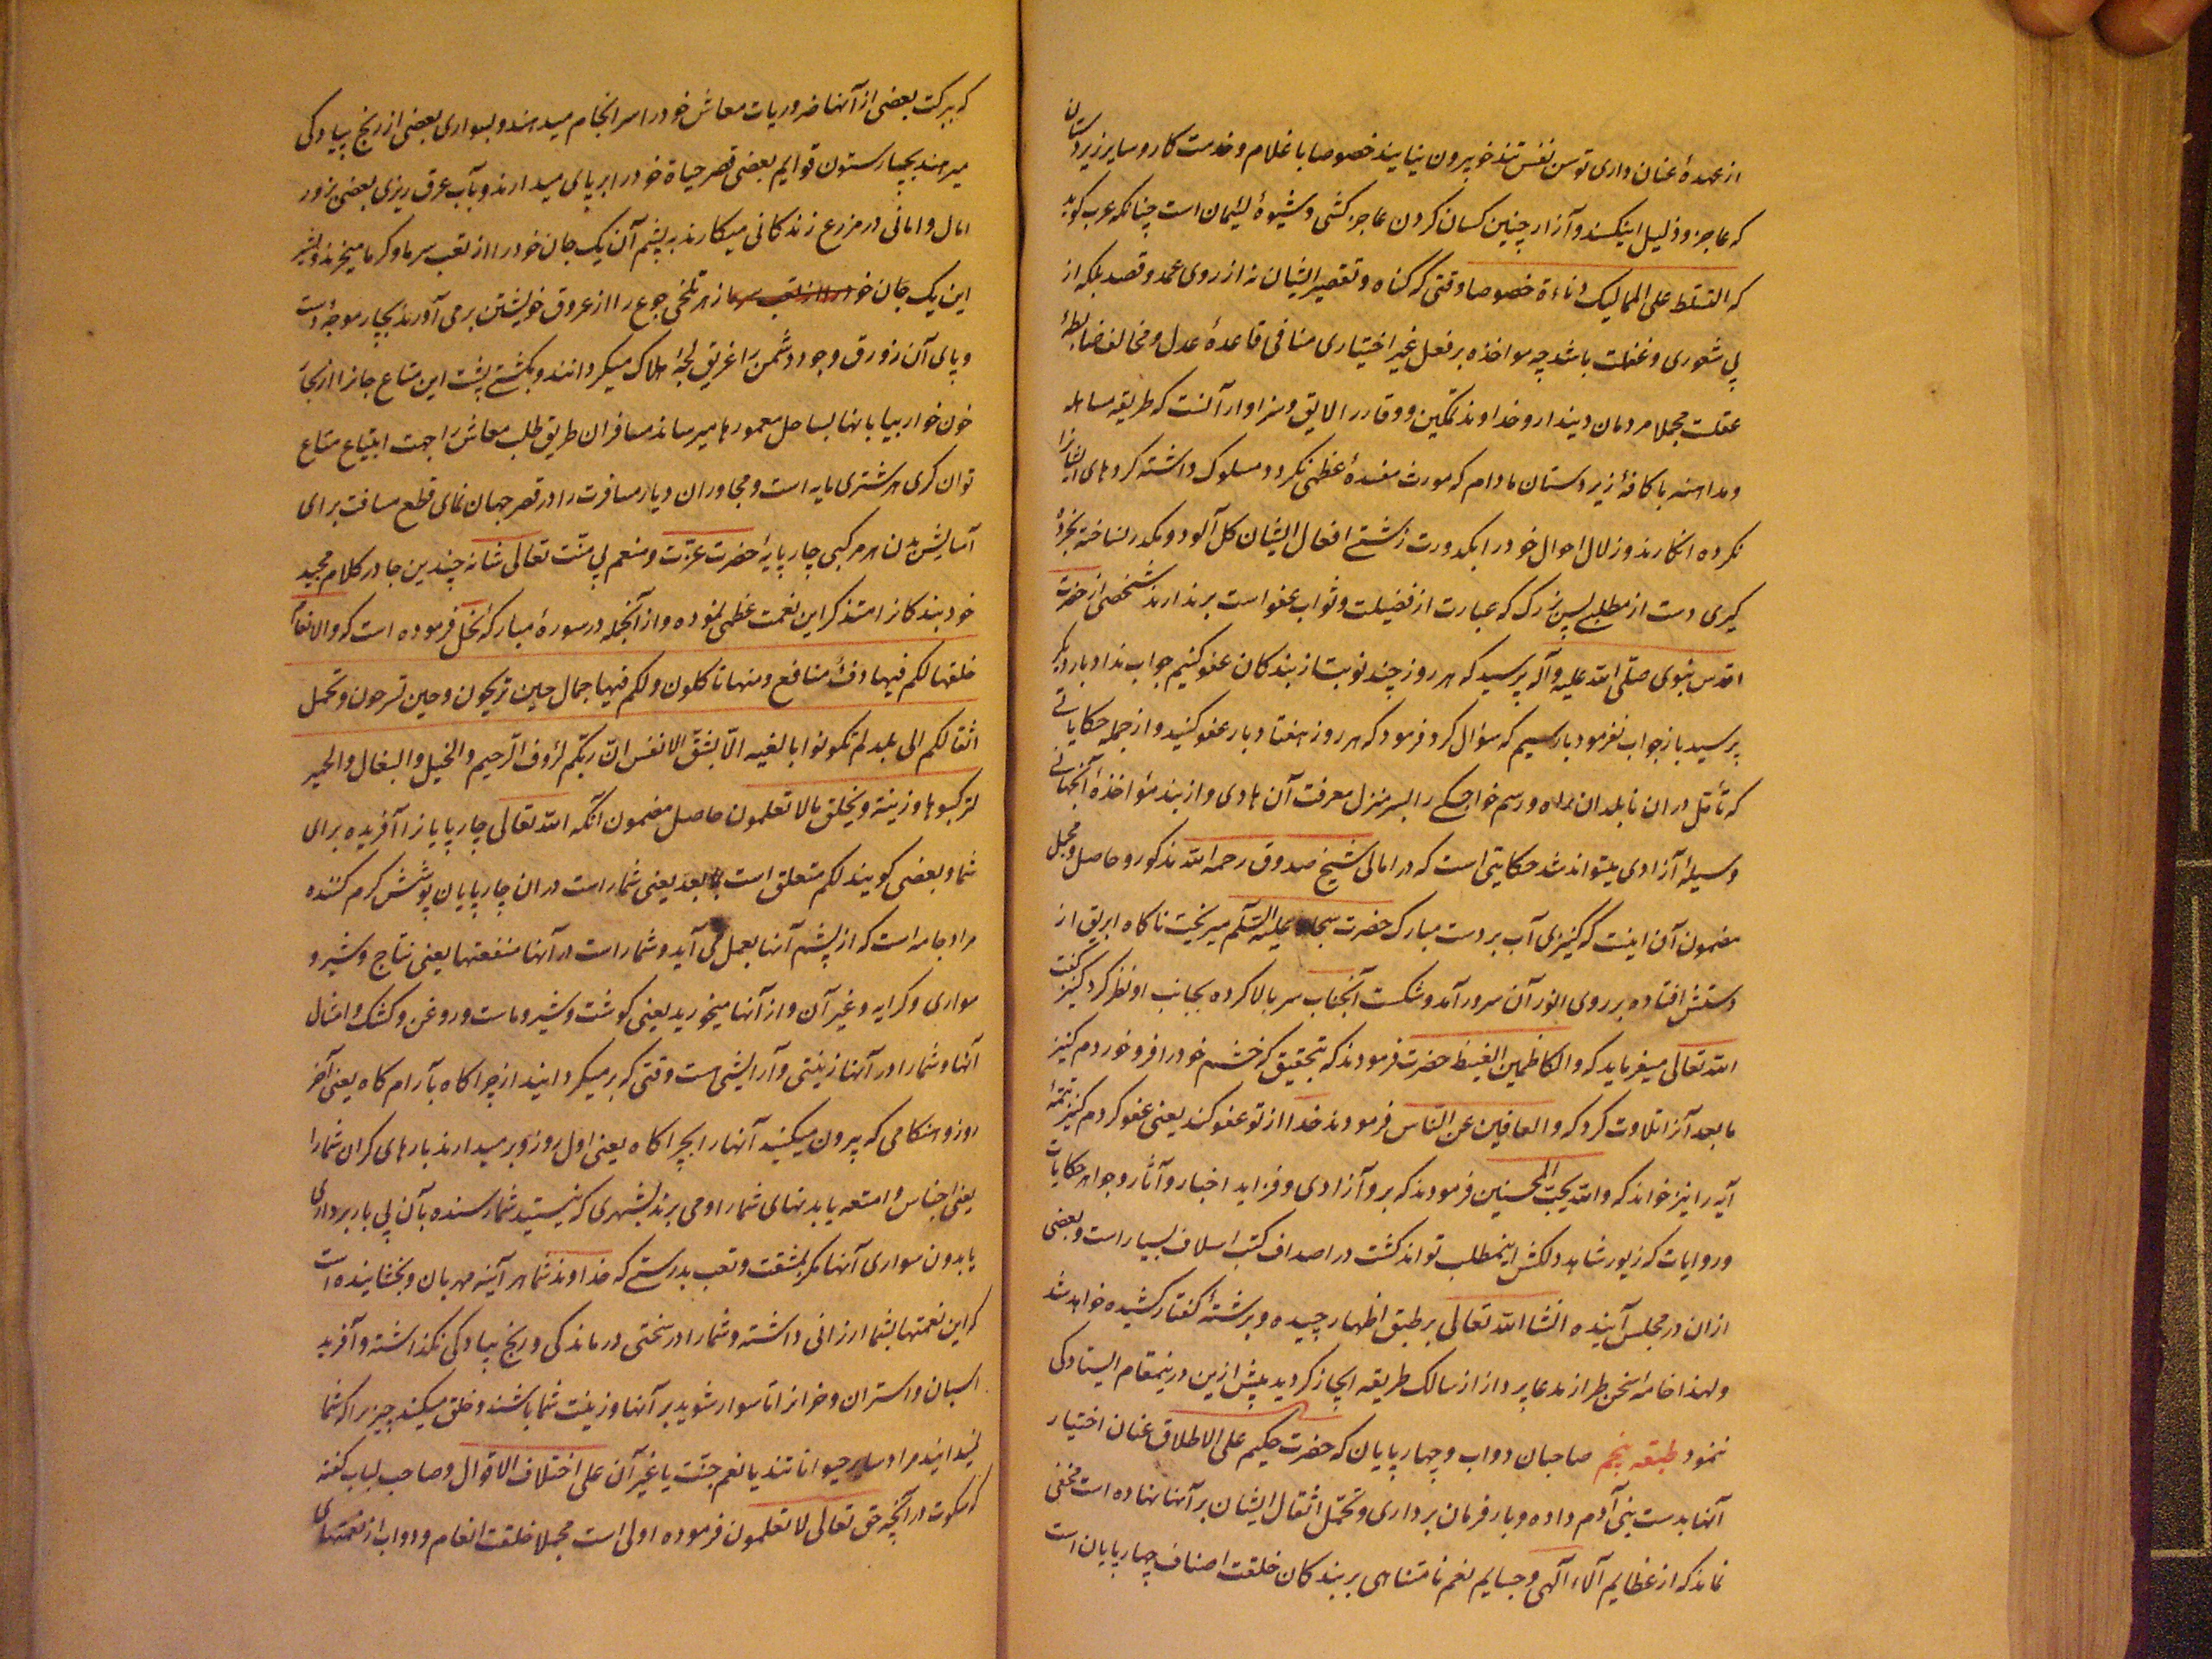 از عهدهٔ عنان داری توسن نفس تند خو بیرون نیایند خصوصا با غلام و خدمت کار و سایر زیردستان
که عاجز و ذلیل اینکسند و آزار چنین کسان کردن عاجز کشی و شیوهٔ لئیمان است چنانکه عرب گوید
که التسلط علی الممالیک دناءة خصوصا وقتی که گناه و تقصیر ایشان نه از روی عمد و قصد بلکه از
بی شعوری و غفلت باشد چه مواخذه بر فعل غیر اختیاری منافی قاعدهٔ عدل و مخالف ضابطهٔ
عقلست مجملا مردمان دیندار و خداوند تمکین و وقار را لایق و سزاوار آنست که طریقه مساهله
و مداهنه با کافهٔ زیردستان مادام که مورث مفسدهٔ عظمی نگردد مسلوک داشته کردهای ایشانرا
نکرده انکارند و زلال احوال خود را بکدورت زشتی افعال ایشان کل آلود و مکدر نساخته بخرده
گیری دست از مطلب بس بزرگ که عبارت از فضیلت و ثواب عفو است برندارند شخصی از حضرت
اقدس نبوی صلی الله علیه وآله پرسید که هر روز چند نوبت از بندکان عفو کنیم جواب نداد بار دیگر
پرسید باز جواب نفرمود بار سیم که سؤال کرد فرمود که هر روز هفتاد بار عفو کنید و از جمله حکایاتی
که تأمّل در ان نابلدان راه و رسم خواجگی را بسر منزل معرفت آن هادی و از بند مؤاخذهٔ آنجهانی
وسیلهٔ آزادی میتواند شد حکایتی است که در امالی شیخ صدوق رحمه الله مذکور و حاصل مجمل
مضمون آن اینست که کنیزی آب بر دست مبارک حضرت سجاد علیه السلام میریخت ناکاه ابریق از
دستش افتاده بر روی انور آن سرور آمد و شکست آنجناب سر بالا کرده بجانب او نظر کرد کنیز گفت
الله تعالی میفرماید که والکاظمین الغیظ حضرت فرمودند که بتحقیق که خشم خود را فرو خوردم کنیز
ما بعد آنرا تلاوت کرد که والعافین عن الناس فرمودند خدا از تو عفو کند یعنی عفو کردم کنیز تتمهٔ
آیه را نیز خواند که والله یحب المحسنین فرمودند که برو آزادی و فزاید اخبار و آثار و جواهر حکایات
و روایات که زیور شاهد دلکش اینمطلب تواند گشت در اصداف کتب اسلاف بسیار است و بعضی
ازان در مجلس آینده انشا الله تعالی بر طبق اظهار چیده و برشتهٔ گفتار کشیده خواهد شد
ولهذا خامهٔ سخن طراز مدعا پرداز از سالک طریقه ایجاز گردید پیش ازین درینمقام ایستادگی
ننمود طبقه پنجم صاحبان دواب و چهارپایان که حضرت حکیم علی الاطلاق عنان اختیار
آنها بدست بنی آدم داده و بار فرمان برداری و تحمّل اثقال ایشان بر آنها نهاده است مخفی
نماند که از عظایم آلاء آلهی و جسایم نعم نامتناهی بر بندکان خلقت اصناف چهارپایان است
که ببرکت بعضی از آنها ضروریات معاش خود را سرانجام میدهند و بسواری بعضی از رنج پیادکی
میرهند بچهار ستون قوایم بعضی قصر حیاة خود را برپای میدارند و بآب عرق ریزی بعضی بزور
امال و امانی در مزرع زندکانی میکارند به پشم آن یک جان خود را از تعب سرما و گرما میخرند و بشیر
این یک جان خود را از تعب سرما زهر تلخی جوع را از عروق خویشتن برمی آورند بچار موجهٔ دست
و پای آن زورق وجود دشمن را غریق لجهٔ هلاک میکردانند و بکشتی پشت این متاع جانرا از بحار
خون خوار بیابانها بساحل معمورها میرساند مسافران طریق طلب معاش را جهت ابتیاع متاع
توان کری هر شتری مایه است و مجاوران دیار مسافرت را در قصر جهان نمای قطع مسافت برای
آسایش بدن هر مرکبی چارپایهٔ حضرت عزّت و منعم بی منّت تعالی شانه چندین جا در کلام مجید
خود بندکانرا متذکر این نعمت عظمی نموده و از آنجمله در سورهٔ مبارکهٔ نحل فرموده است که والانعام
خلقها لکم فیها دفء و منافع و منها تاکلون ولکم فیها جمال حین تریحون و حین تسرحون و تحمل
اثقالکم الی بلد لم تکونوا بالغیه الّا بشقّ الانفس انّ ربکم لرؤف الرّحیم والخیل والبغال والحمیر
لترکبوها و زینة و یخلق مالا تعلمون حاصل مضمون آنکه الله تعالی چارپایانرا آفریده برای
شما و بعضی کویند لکم متعلق است بما بعد یعنی شما راست دران چارپایان پوشش کرم کننده
مراد جامه است که از پشم آنها بعمل می آید و شما راست در آنها منفعتها یعنی نتاج و شیر و
سواری و کرایه و غیر آن و از آنها میخورید یعنی کوشت و شیر و ماست و روغن و کشک و امثال
آنها و شما را در آنها زینتی و آرایشی هست وقتی که برمیکردانید از چراکاه بآرام کاه یعنی آخر
روز و هنکامی که بیرون میکنید آنها را بچراکاه یعنی اول روز و بر میدارند بارهای کران شما را
یعنی اجناس و امتعه یا بدنهای شما را و می برند بشهری که نیستید شما رسنده بآن بی باربرداری
یا بدون سواری آنها مکر بمشقت و تعب بدرستی که خداوند شما هر آینه مهربان و بخشاینده است
که این نعمتها بشما ارزانی داشته و شما را در سختی درماندکی و رنج پیادکی نگذاشته و آفرید
اسبان و استران و خرانرا تا سوار شوید بر آنها و زینت شما باشند و خلق میکند چیز برا که شما
نمیدانید مراد سایر حیوانات‌ند یا نعم جنّت یا غیر آن علی اختلاف الاقوال و صاحب لباب گفته
که سکوت در آنچه حق تعالی لا تعلمون فرموده اولی است مجملا خلقت انعام و دواب از نعمتهای